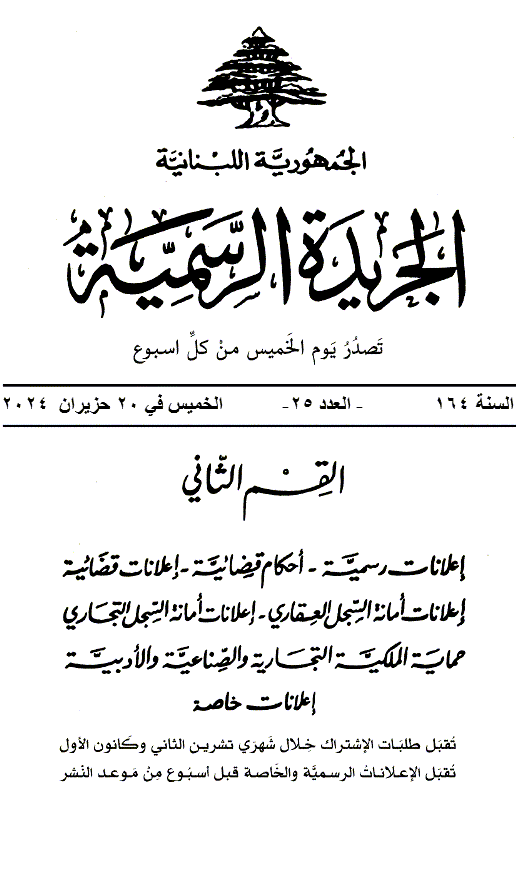 الجُمهُوريَّة اللبْنانيَّة
الجَريدَة الرسَّمِيَّة
تَصدُرُ يَوم الخَميس منْ كلِّ اسبوع
السنة ١٦٤ - العدد ٢٥- الخميس في ٢٠ حزيران ٢٠٢٤
القِسْم الثّاني
إعلانات رسميَّة - أحكام قضائيَّة - إعلانات قضائية
إعلانات أمانة السِّجل العِقاري - إعلانات أمانة السِّجل التجاري
حماية الملكيَّة التجارية والصِّناعيَّة والأدبيَّة
إعلانات خاصة
تُقبَل طلبَات الإشتراك خِلال شَهرَي تشرين الثاني وكَانون الأول
تُقبَل الإعلاناتُ الرسميَّة والخَاصة قبل أسبُوع مِنْ مَوعد النّشر